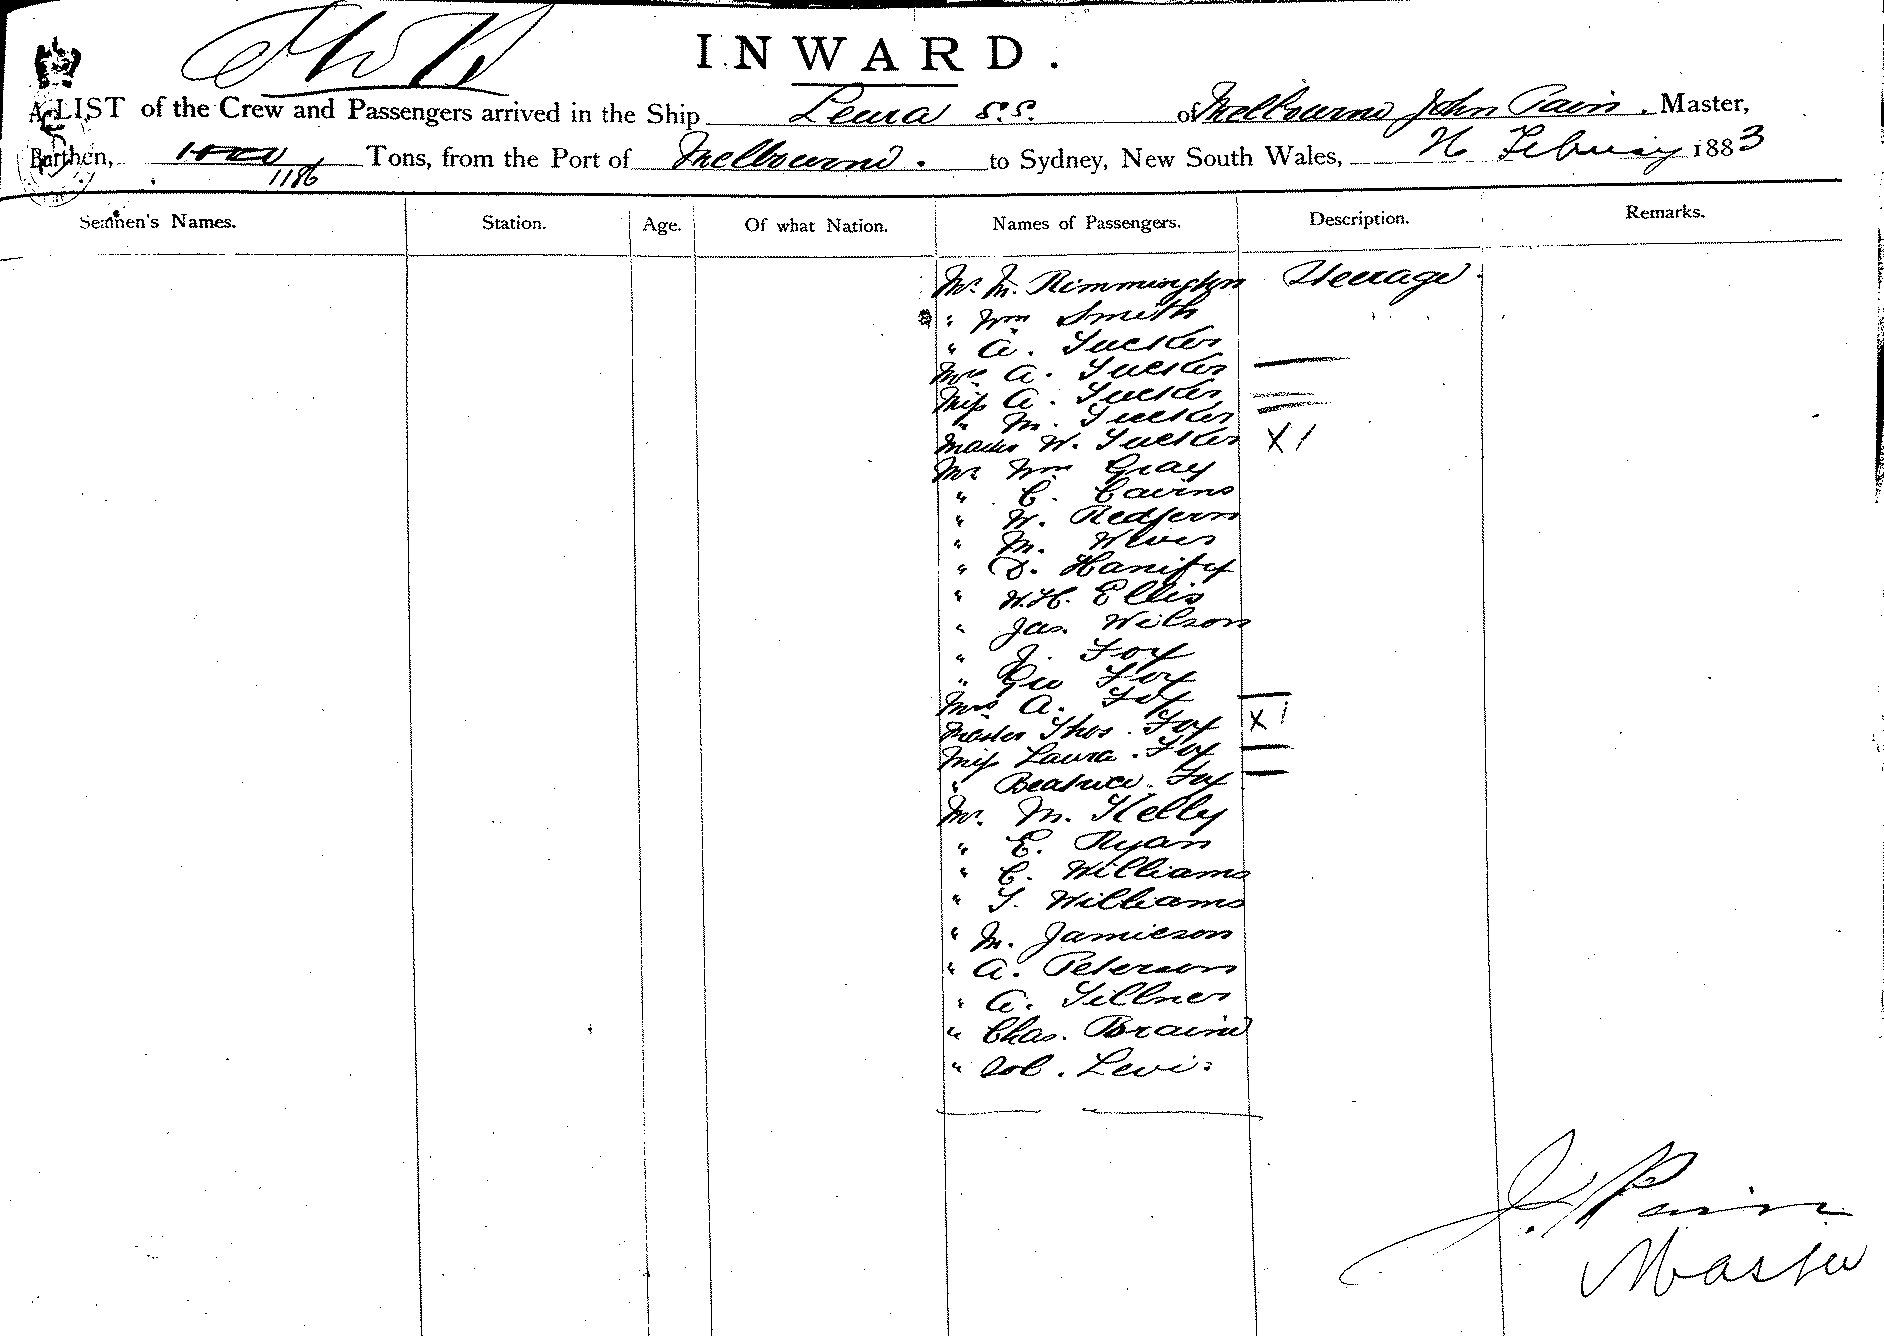 INWARD.
A LIST of the Crew and Passengers arrived in the Ship Leura s.s. of Melbourne John Pain. Master,
Burthen, 1186 Tons, from the Port of Melbourne. to Sydney, New South Wales, 26 Febuary 1883
Seamen's Names. Station. Age. Of what Nation. Names of Passengers. Description. Remarks.
Mr. M. Rimmington Steerage.
" Wm Smith
" A. Tucker
Mrs A. Tucker
Miss A. Tucker
" M. Tucker
Master W. Tucker X 1
Mr Wm Gray
" C. Cairns
" W. Redfern
" M.
" D. Hanify
" W.H. Ellis
" Jas. Weilson
" J. Fox
" Geo Fox
Mrs A. Fox
Master Thos. Fox X 1
Miss Laura. Fox
" Beatrice. Fox
Mr. M. Kelly
" E. Ryan
" C. Williams
" T. Williams
" M. Jamieson
" A. Peterson
" A. Tillner
" Chas. Braine
" Sol. Levi.
J. Pain
Master